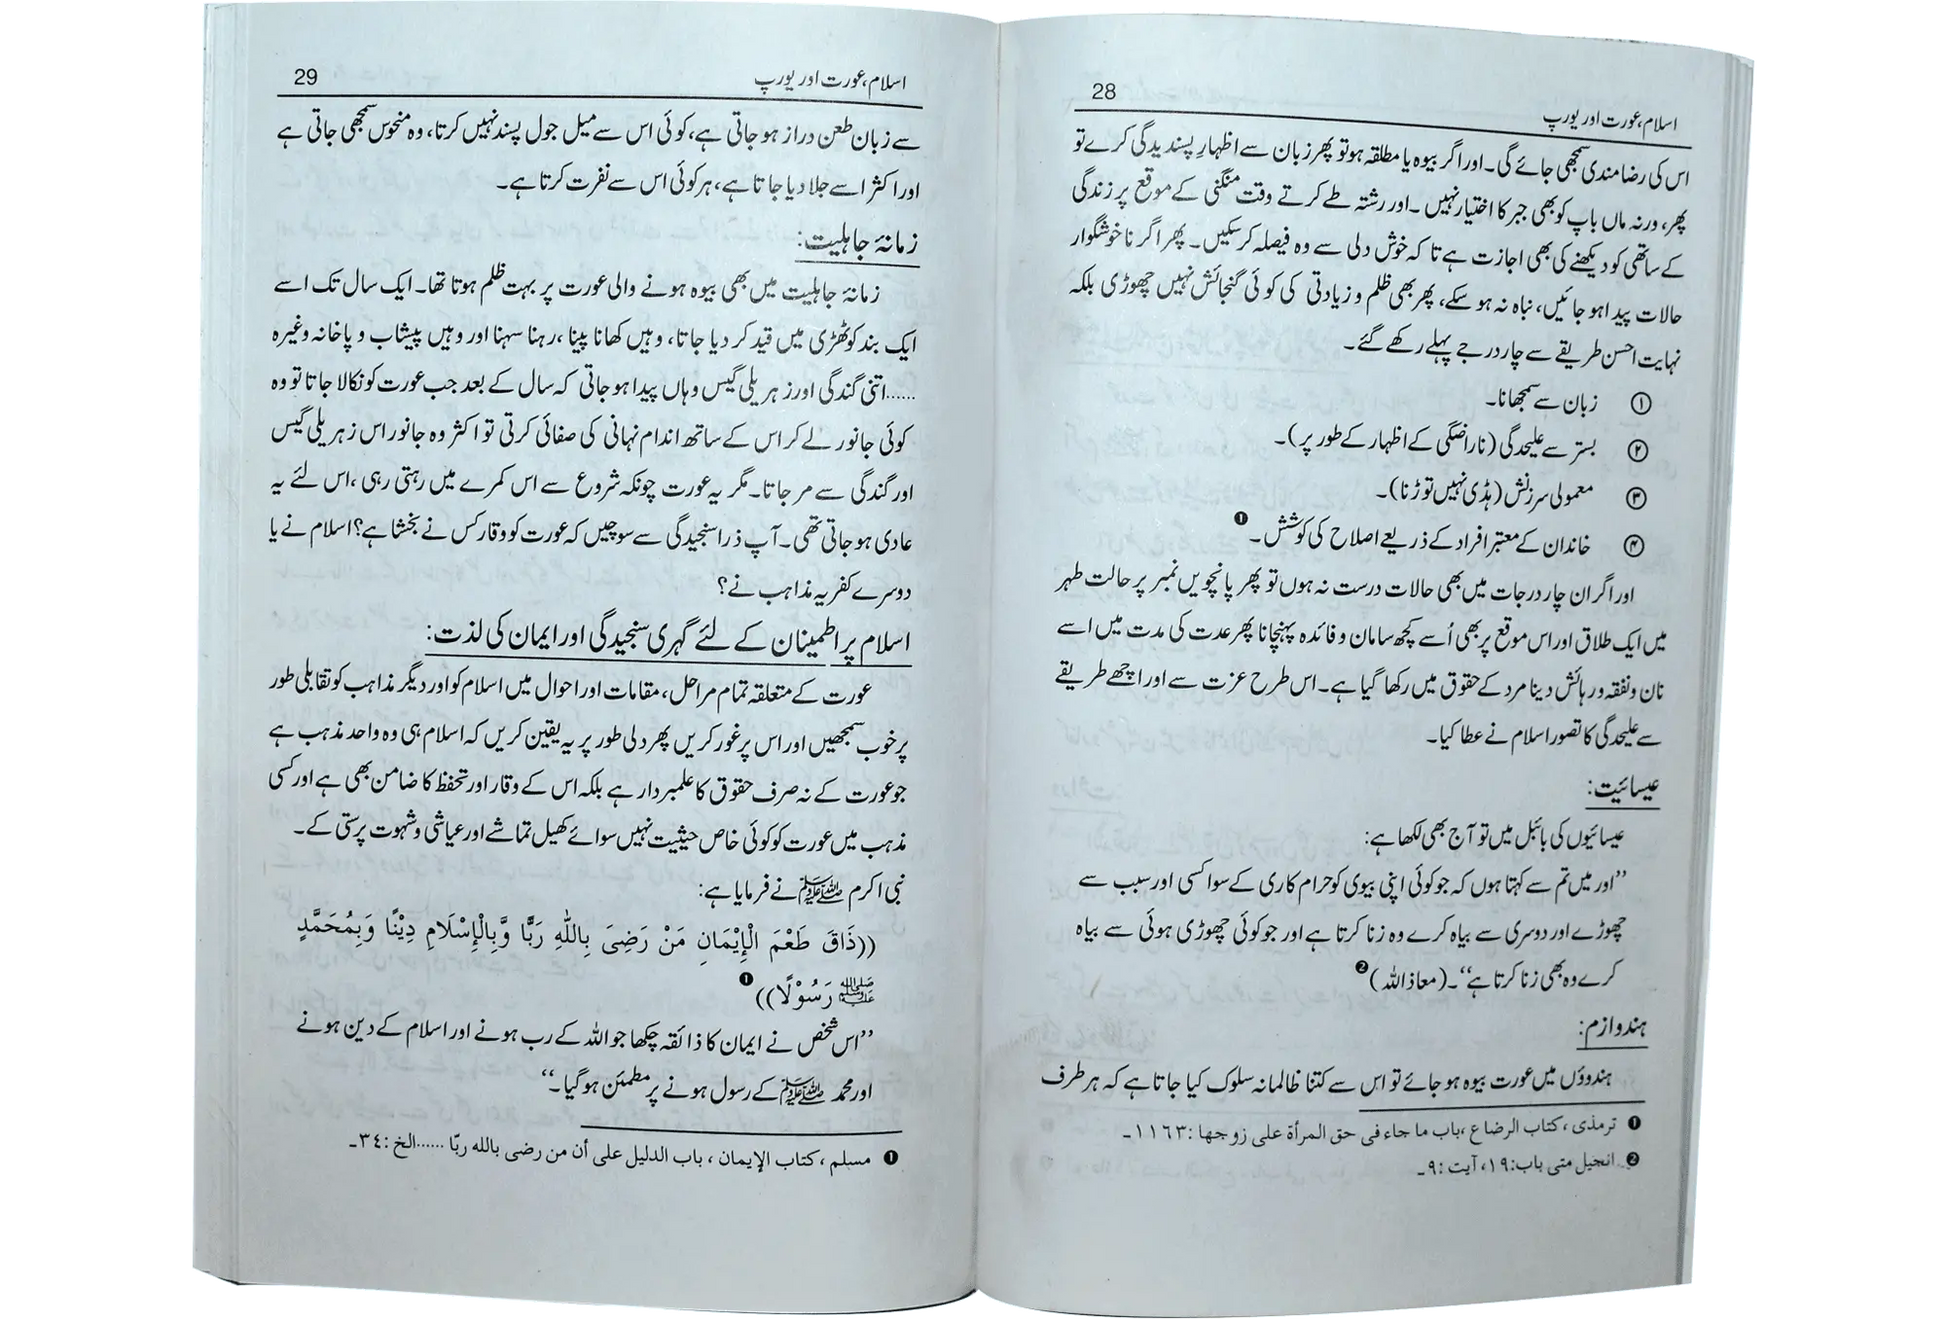 28
اسلام، عورت اور یورپ
اس کی رضامندی سمجھی جائے گی۔ اور اگر بیوہ یا مطلقہ ہو تو پھر زبان سے اظہارِ پسندیدگی کرے تو
پھر، ورنہ ماں باپ کو بھی جبر کا اختیار نہیں۔ اور رشتہ طے کرتے وقت منگنی کے موقع پر زندگی
کے ساتھی کو دیکھنے کی بھی اجازت ہے تا کہ خوش دلی سے وہ فیصلہ کر سکیں۔ پھر اگر ناخوشگوار
حالات پیدا ہو جائیں، نباہ نہ ہو سکے، پھر بھی ظلم و زیادتی کی کوئی گنجائش نہیں چھوڑی بلکہ
نہایت احسن طریقے سے چار درجے پہلے رکھے گئے۔
① زبان سے سمجھانا۔
② بستر سے علیحدگی (ناراضگی کے اظہار کے طور پر)۔
③ معمولی سرزنش (ہڈی نہیں توڑنا)۔
④ خاندان کے معتبر افراد کے ذریعے اصلاح کی کوشش۔ ❶
اور اگر ان چار درجات میں بھی حالات درست نہ ہوں تو پھر پانچویں نمبر پر حالت طہر
میں ایک طلاق اور اس موقع پر بھی اُسے کچھ سامان و فائدہ پہنچانا پھر عدت کی مدت میں اسے
نان و نفقہ و رہائش دینا مرد کے حقوق میں رکھا گیا ہے۔ اس طرح عزت سے اور اچھے طریقے
سے علیحدگی کا تصور اسلام نے عطا کیا۔
عیسائیت:
عیسائیوں کی بائبل میں تو آج بھی لکھا ہے:
’’اور میں تم سے کہتا ہوں کہ جو کوئی اپنی بیوی کو حرام کاری کے سوا کسی اور سبب سے
چھوڑے اور دوسری سے بیاہ کرے وہ زنا کرتا ہے اور جو کوئی چھوڑی ہوئی سے بیاہ
کرے وہ بھی زنا کرتا ہے‘‘۔ (معاذ اللہ) ❷
ہندوازم:
ہندوؤں میں عورت بیوہ ہو جائے تو اس سے کتنا ظالمانہ سلوک کیا جاتا ہے کہ ہر طرف
❶ ترمذی، کتاب الرضاع، باب ما جاء فی حق المرأة علی زوجها: ١١٦٣۔
❷ انجیل متی باب: ١٩، آیت: ٩۔
29
اسلام، عورت اور یورپ
سے زبان طعن دراز ہو جاتی ہے، کوئی اس سے میل جول پسند نہیں کرتا، وہ منحوس سمجھی جاتی ہے
اور اکثر اسے جلا دیا جاتا ہے، ہر کوئی اس سے نفرت کرتا ہے۔
زمانۂ جاہلیت:
زمانۂ جاہلیت میں بھی بیوہ ہونے والی عورت پر بہت ظلم ہوتا تھا۔ ایک سال تک اسے
ایک بند کوٹھڑی میں قید کر دیا جاتا، وہیں کھانا پینا، رہنا سہنا اور وہیں پیشاب و پاخانہ وغیرہ
......اتنی گندگی اور زہریلی گیس وہاں پیدا ہو جاتی کہ سال کے بعد جب عورت کو نکالا جاتا تو وہ
کوئی جانور لے کر اس کے ساتھ اندام نہانی کی صفائی کرتی تو اکثر وہ جانور اس زہریلی گیس
اور گندگی سے مر جاتا۔ مگر یہ عورت چونکہ شروع سے اس کمرے میں رہتی رہی، اس لئے یہ
عادی ہو جاتی تھی۔ آپ ذرا سنجیدگی سے سوچیں کہ عورت کو وقار کس نے بخشا ہے؟ اسلام نے یا
دوسرے کفریہ مذاہب نے؟
اسلام پر اطمینان کے لئے گہری سنجیدگی اور ایمان کی لذت:
عورت کے متعلقہ تمام مراحل، مقامات اور احوال میں اسلام کو اور دیگر مذاہب کو تقابلی طور
پر خوب سمجھیں اور اس پر غور کریں پھر دلی طور پر یہ یقین کریں کہ اسلام ہی وہ واحد مذہب ہے
جو عورت کے نہ صرف حقوق کا علمبردار ہے بلکہ اس کے وقار اور تحفظ کا ضامن بھی ہے اور کسی
مذہب میں عورت کو کوئی خاص حیثیت نہیں سوائے کھیل تماشے اور عیاشی و شہوت پرستی کے۔
نبی اکرم ﷺ نے فرمایا ہے:
((ذَاقَ طَعْمَ الْإِیْمَانِ مَنْ رَضِیَ بِاللّٰهِ رَبًّا وَّبِالْإِسْلَامِ دِیْنًا وَبِمُحَمَّدٍ
ﷺ رَسُوْلًا)) ❶
’’اس شخص نے ایمان کا ذائقہ چکھا جو اللہ کے رب ہونے اور اسلام کے دین ہونے
اور محمد ﷺ کے رسول ہونے پر مطمئن ہو گیا۔‘‘
❶ مسلم، کتاب الإیمان، باب الدلیل علی أن من رضی بالله ربّا ......الخ: ٣٤۔